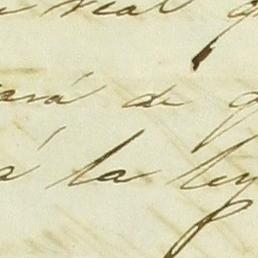 real
ará de
á la ley